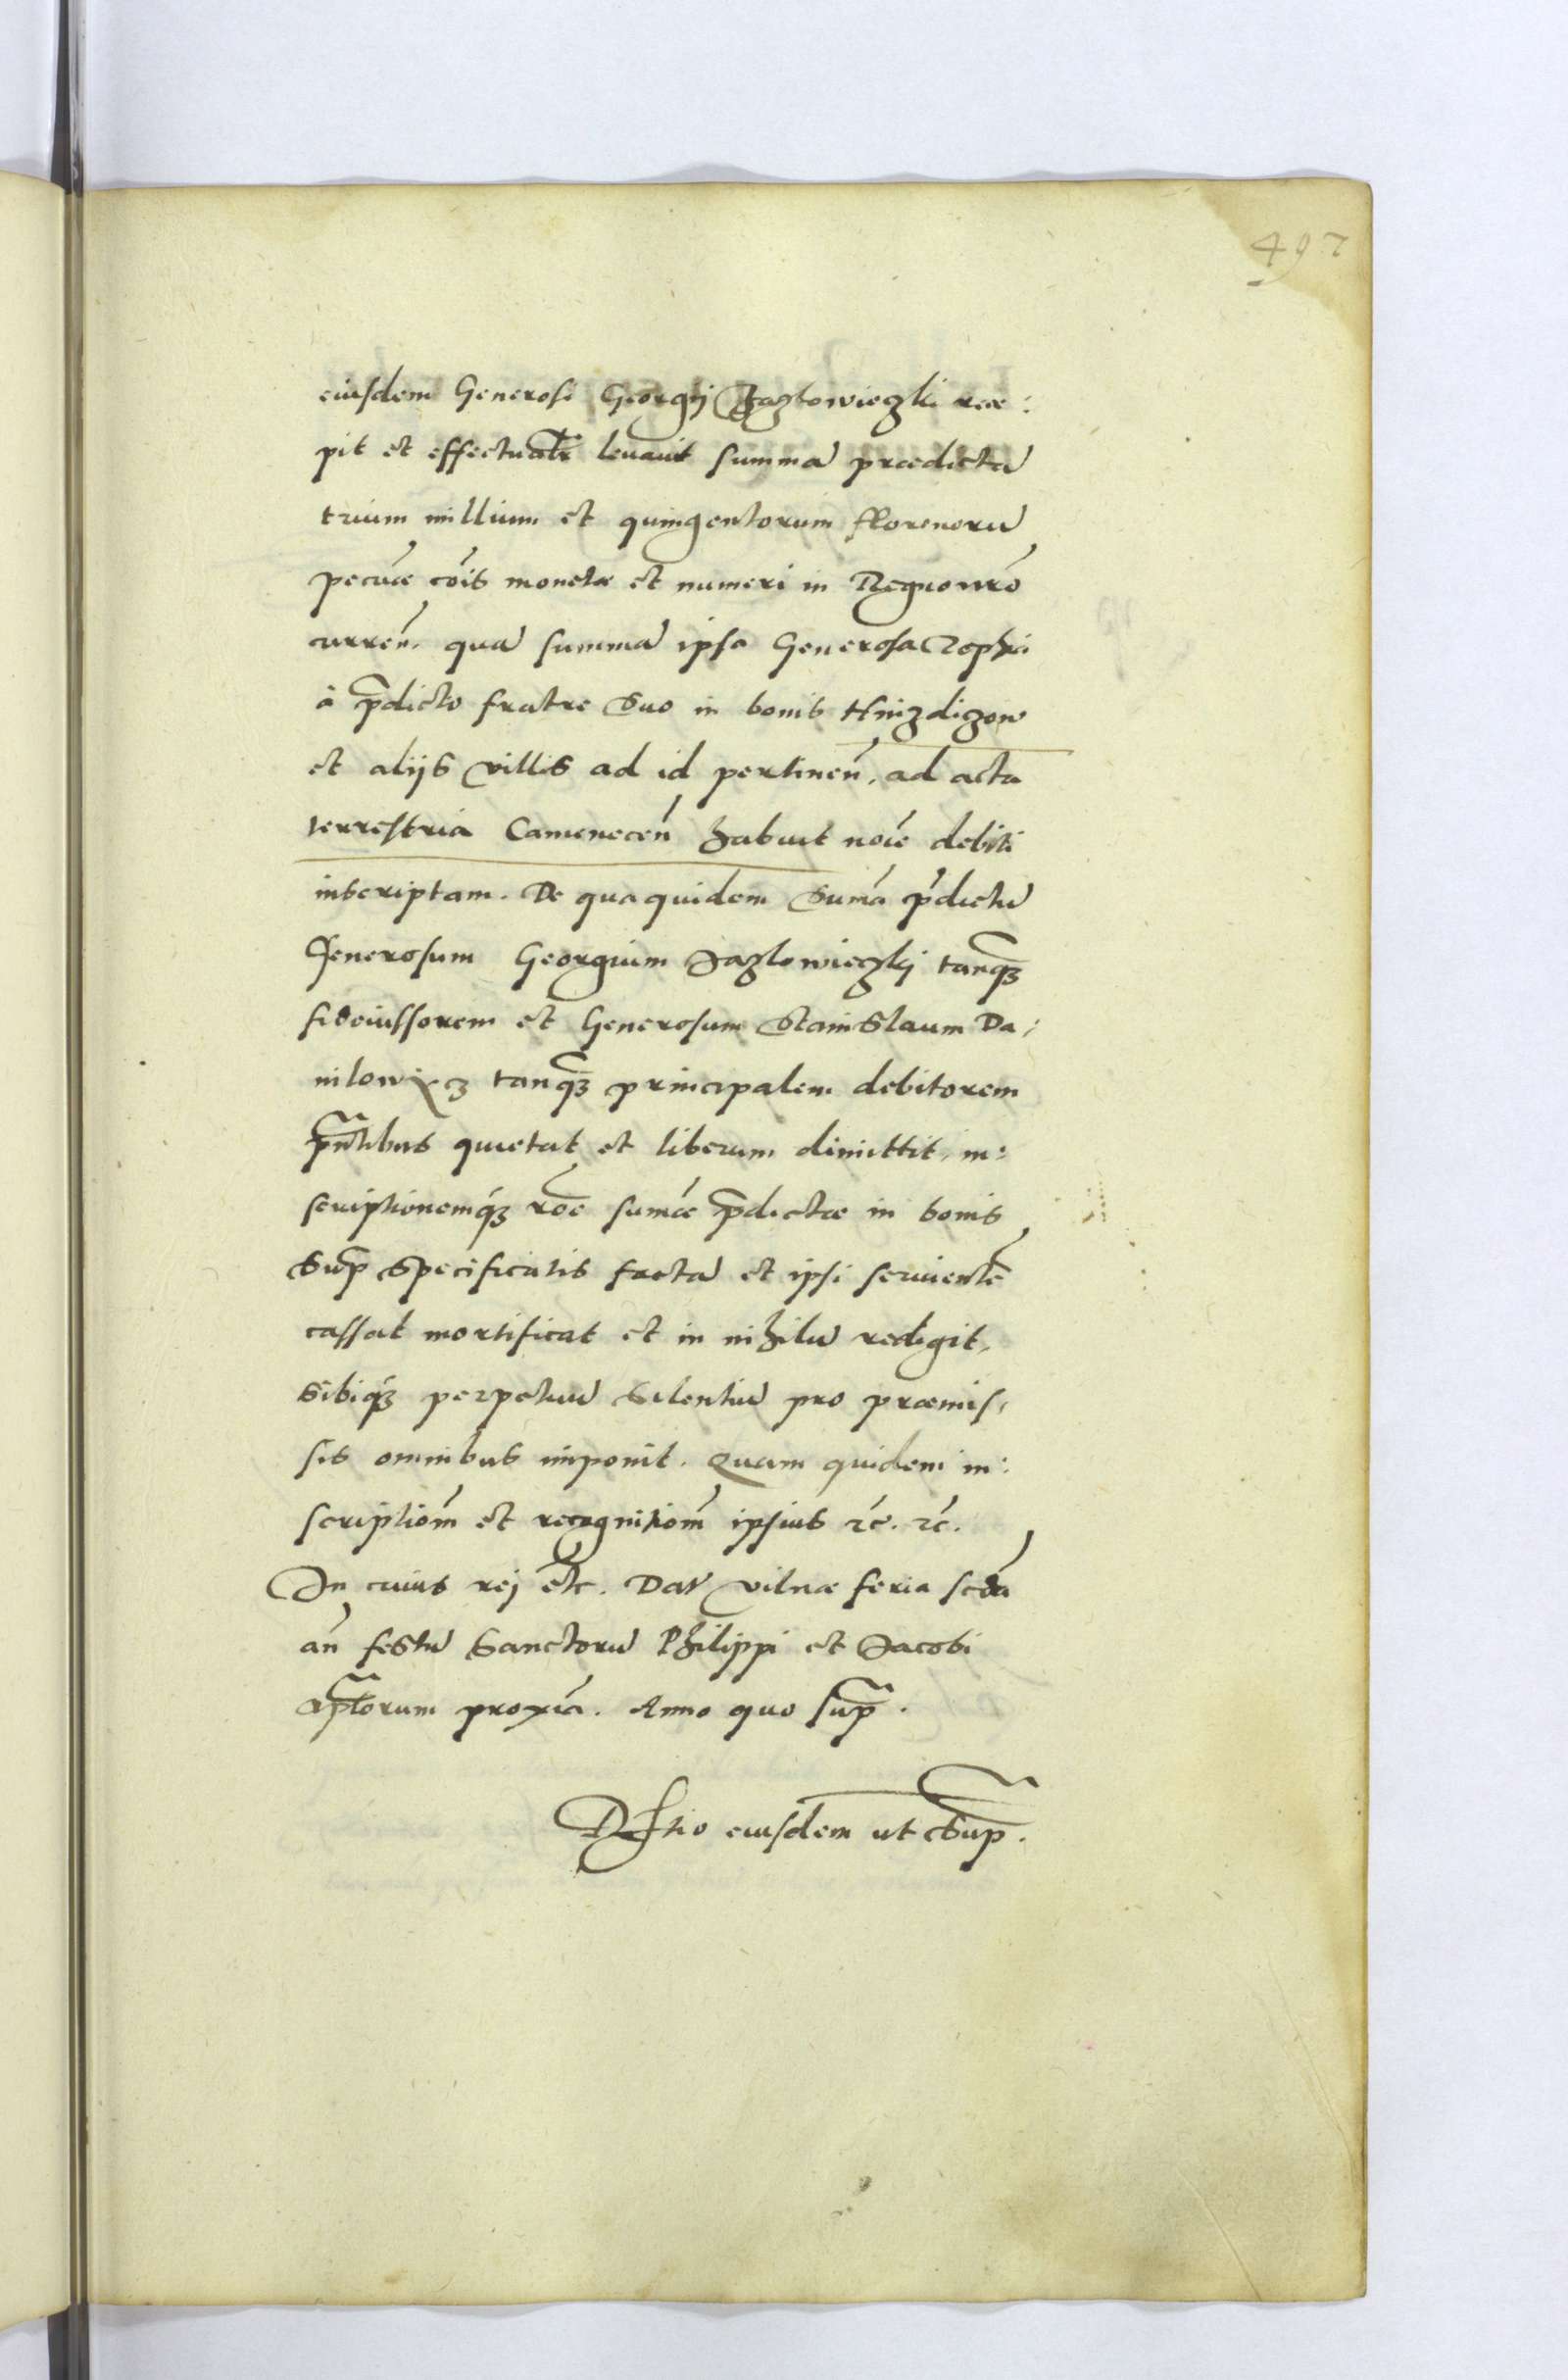 497
eiusdem Generosi Georgij Jazlowieczki rece:
pit et effectualr̃ leuauit summã prædictã
trium millium et quingentorum florenorũ
pecũæ cõis monetæ et numeri in Regno nr̃o
currẽn. quã summã ipsa Generosa Zophia
à p̃dicto fratre suo in bonis Hnizdiczow
et alijs villis ad id pertineñ, ad acta
terrestria Cameneceñ habuit nõie debiti
inscriptam. De qua quidem sum̃a p̃dictũ
Generosum Georgium Jazlowieczkj tanq̃ꝫ
fideiussorem et Generosum Stanislaum Da:
nilowicz tanq̃ꝫ principalem debitorem
p̃ntibus quietat et liberum dimittit, in:
scriptionemq́ꝫ rõe sum̃æ p̃dictæ in bonis
sup̃ specificatis factã et ipsi seruientẽ
cassat mortificat et in nihilũ redigit,
sibiq́ꝫ perpetuũ silentiũ pro præmis,
sis omnibus imponit. Quam quidem in:
scriptiom̃ et recognitiom̃ ipsius ꝛc̃. ꝛc̃.
In cuius rej etc̃. Dat̃ Vilnæ feria scd̃a
añ festũ Sanctorũ Philippi et Jacobi
ap̃lorum proxĩa. Anno quo sup̃.
R̃tio eiusdem ut sup̃.